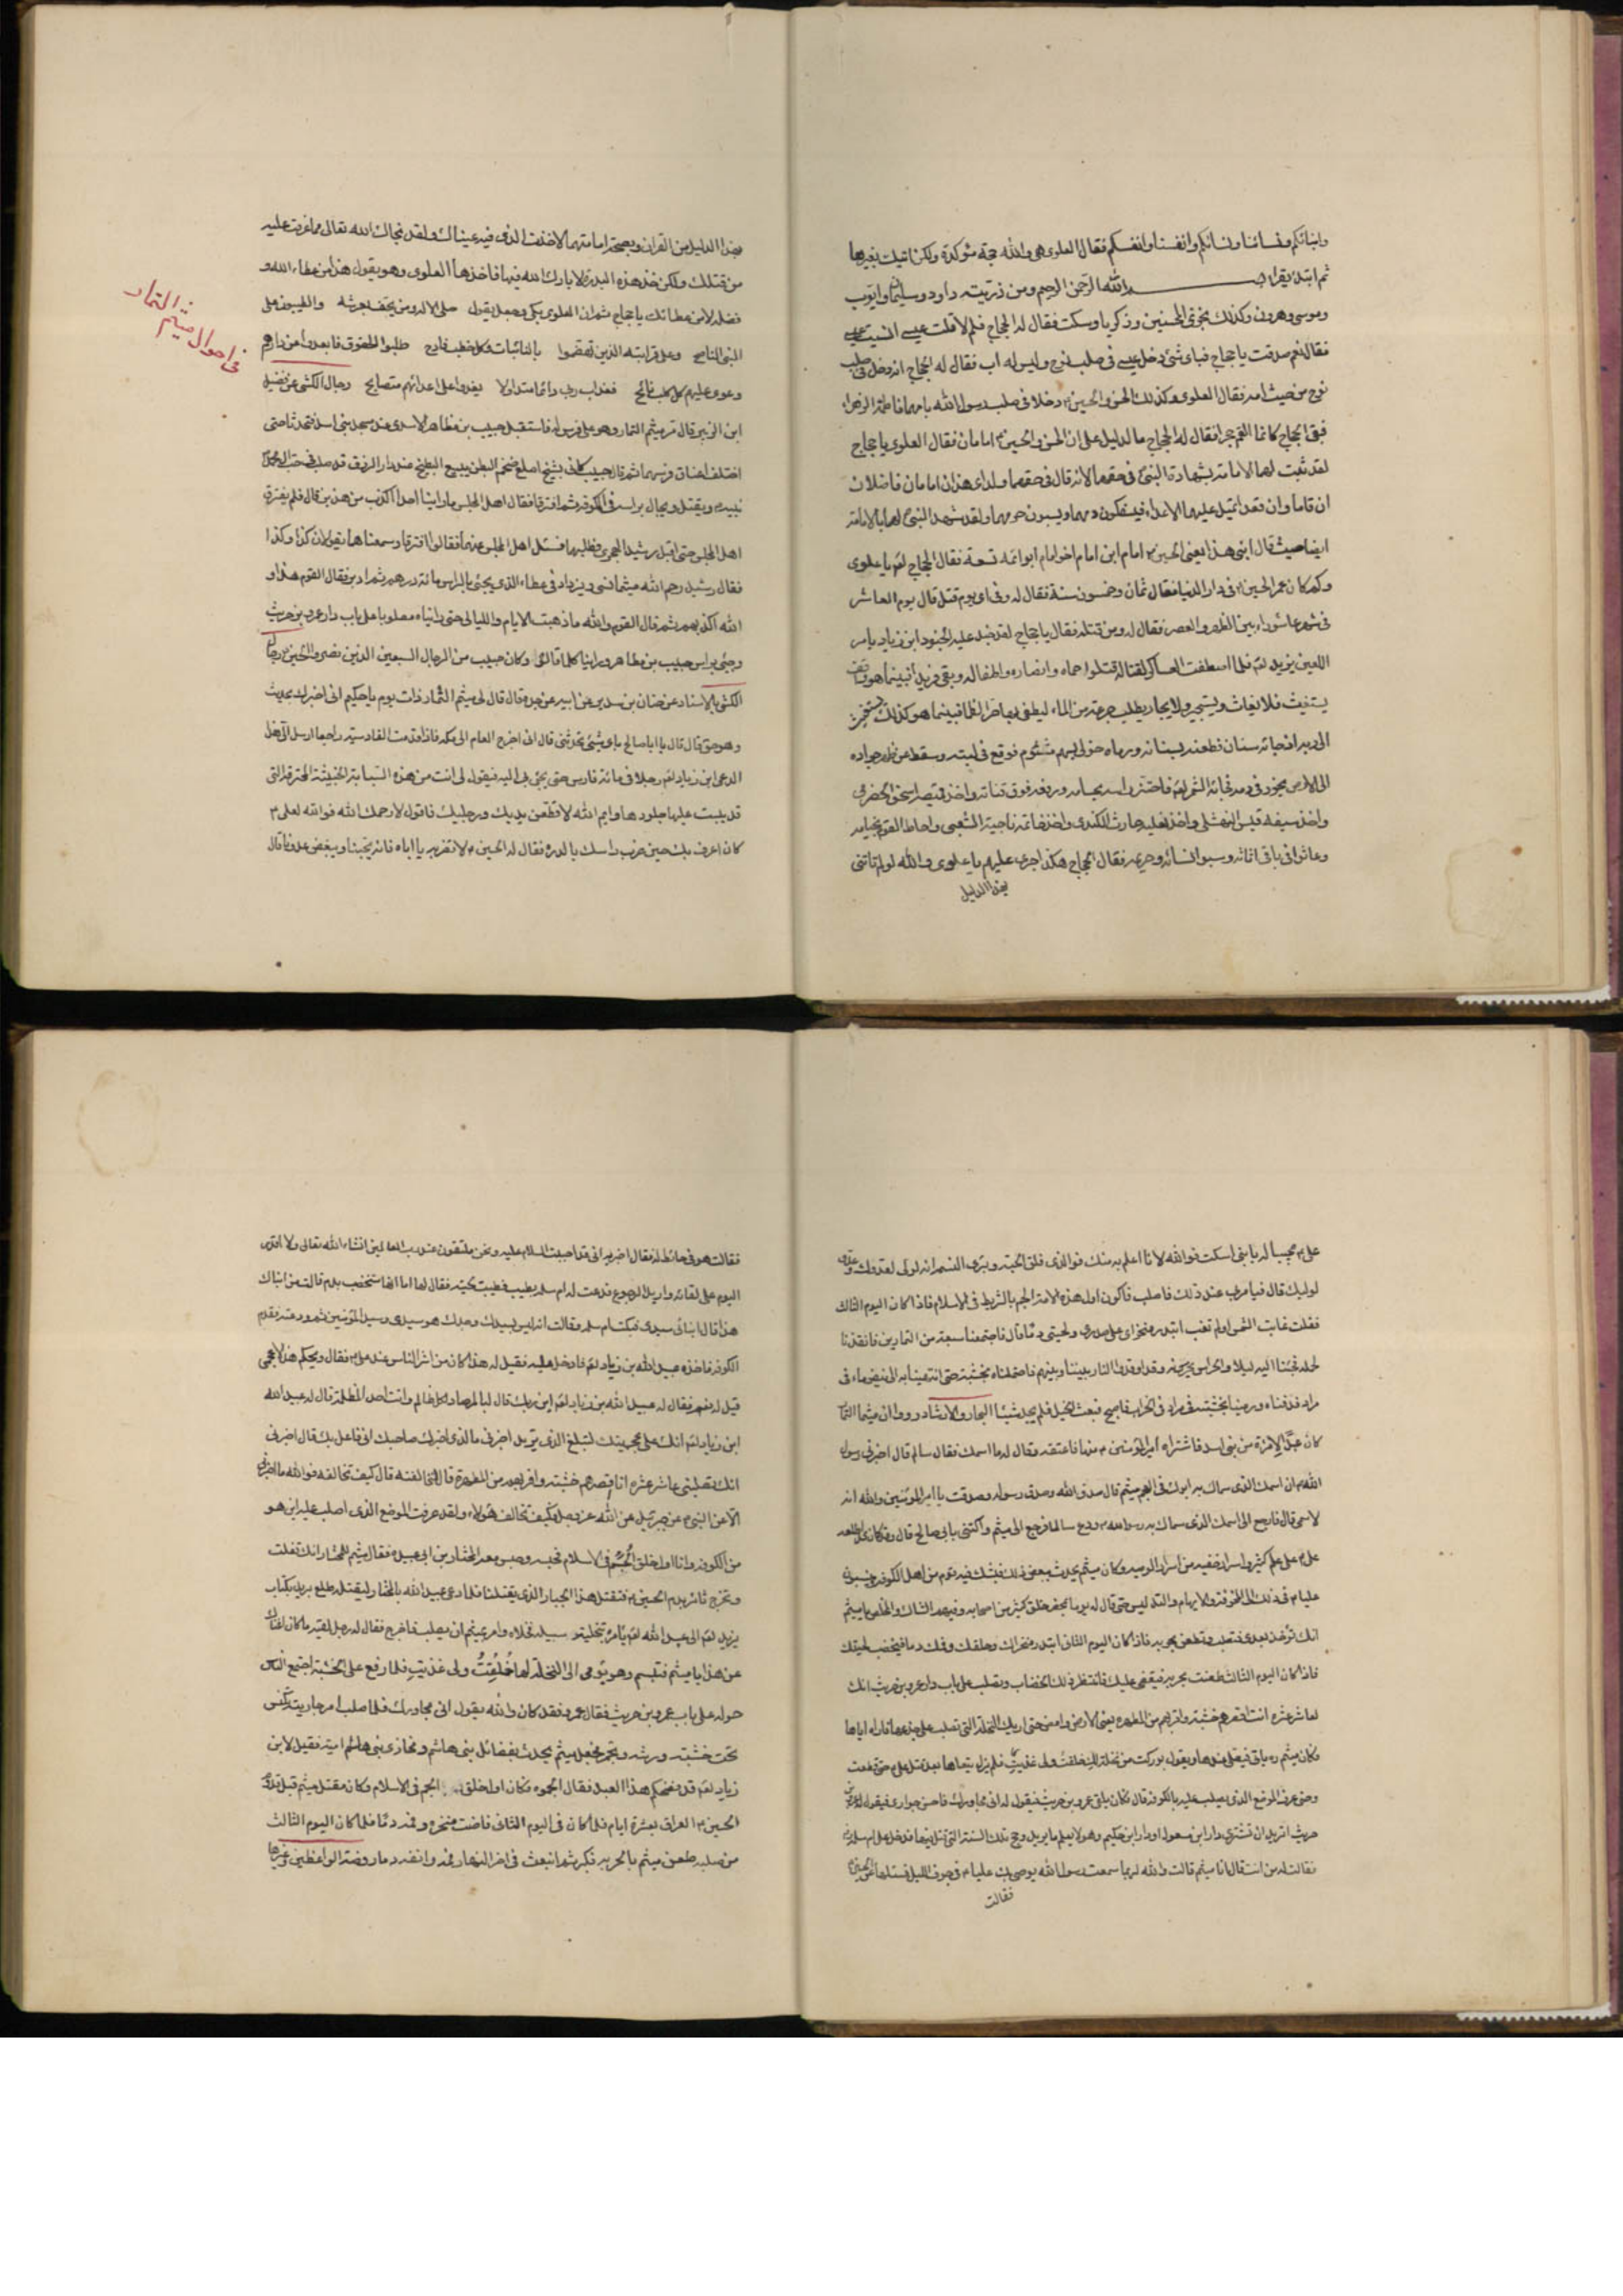 وابنائكم ونسائنا ونسائكم وانفسنا وانفسكم فقال العلوى هى والله حجة مؤكدة ولكن اتيك بغيرها
ثم ابتدء يقرا بسم الله الرحمن الرحيم ومن ذريته داود وسليمان وايوب
وموسى وهرون وكذلك نجزى المحسنين وزكريا وسكت فقال له الحجاج فلم لا قلت عيسى انسيت عيسى
فقال نعم صدقت يا حجاج فباى شئ دخل عيسى فى صلب نوح وليس له اب فقال له الحجاج انه دخل فى صلب
نوح من حيث امه فقال العلوى وكذلك الحسن والحسين دخلا فى صلب رسول الله بامهما فاطمة الزهراء
فبقى الحجاج كانما القم حجرا فقال له الحجاج ما الدليل على ان الحسن والحسين امامان فقال العلوى يا حجاج
لقد ثبتت لهما الامامة بشهادة النبى فى حقهما لانه قال فى حقهما ولداى هذان امامان فاضلان
ان قاما وان قعدا تميل عليهما الاعداء فيسفكون دمهما ويسبون حرمهما ولقد شهد النبى لهما بالامامة
ايضا حيث قال ابنى هذا يعنى الحسين امام ابن امام اخو امام ابو ائمة تسعة فقال الحجاج لعنه يا علوى
وكم كان عمر الحسين فى دار الدنيا فقال ثمان وخمسون سنة فقال له وفى اى يوم قتل قال يوم العاشر
فى شهر عاشوراء بين الظهر والعصر فقال له ومن قتله فقال يا حجاج لقد جند عليه الجنود ابن زياد بامر
اللعين يزيد لعنه فلما اصطفت العساكر لقتاله قتلوا حماه وانصاره واطفاله وبقى فريدا فبينما هو
يستغيث فلا يغاث ويستجير ولا يجار يطلب جرعة من الماء ليطفى بها حر الظما فبينما هو كذلك
الى ربه اذ جائه سنان فطعنه بسنانه ورماه خولى بسهم مشئوم فوقع فى لبته وسقط عن ظهر جواده
الى الارض يجور فى دمه فجائه الشمر لعنه فاحتز راسه بحسامه ورفعه فوق قناته واخذ قميصه اسحق الحضرمى
واخذ سيفه قيس النهشلى واخذ بغلته حارث الكندى واخذ خاتمه ناجية الشعبى واحاط القوم بخيامه
وعاثوا فى باقى اثاثه وسبوا نسائه وحريمه فقال الحجاج هكذا جرى عليهم يا علوى والله لو لم تاتنى
بهذا الدليل
بهذا الدليل من القران وبصحة امامتهما لاخذت الذى فيه عيناك ولقد نجاك الله تعالى مما عزمت عليه
من قتلك ولكن خذ هذه البدرة لا بارك الله لك فيها فاخذها العلوى وهو يقول هذا من عطاء الله و
فضله لا من عطائك يا حجاج ثم ان العلوى بكى وجعل يقول صلى الاله ومن يحف بعرشه والطيبون على
النبى الناصح وعلى قرابته الذين نهضوا بالنائبات وكل خطب فادح طلبوا الحقوق فابعدوا من دارهم
وعوى عليهم كل كلب نائح فعذاب ربى دائما متداولا يغدوا على اعدائهم متصايح رجال الكشى عن فضيل
ابن الزبير قال مر ميثم التمار وهو على فرس له فاستقبل حبيب بن مظاهر الاسدى عند مسجد بنى اسد فتحدثا حتى
اختلف اعناق فرسيهما ثم قال حبيب كانى بشيخ اصلع ضخم البطن يبيع البطيخ عند دار الرزق قد صلب فى حب اهل بيت
نبيه ويقتل ويجال براسه فى الكوفة ثم افترقا فقال اهل المجلس ما راينا احدا اكذب من هذين قال فلم يفترق
اهل المجلس حتى اقبل رشيد الهجرى فطلبهما فسئل اهل المجلس عنهما فقالوا افترقا وسمعناهما يقولان كذا وكذا
فقال رشيد رحم الله ميثما نسى ويزاد فى عطاء الذى يجئ بالراس مائة درهم ثم ادبر فقال القوم هذا و
الله اكذبهم ثم قال القوم والله ما ذهبت الايام والليالى حتى رايناه مصلوبا على باب دار عمرو بن حريث
وجئ براس حبيب بن مظاهر وراينا كلما قالوا وكان حبيب من الرجال السبعين الذين نصروا الحسين
الكشى بالاسناد عن حنان بن سدير عن ابيه عن جده قال قال لى ميثم التمار ذات يوم يا حكيم انى اخبرك بحديث
وهو حق قال قال يا ابا صالح باى شئ تحدثنى قال انى اخرج العام الى مكة فاذا قدمت القادسية راجعا ارسل الى هذا
الدعى ابن زياد لعنه رجلا فى مائة فارس حتى يجئ بى اليه فيقول لى انت من هذه السبابية الخبيثة المحترقة التى
قد يبست عليها جلودها وايم الله لاقطعن يديك ورجليك فاقول لا رحمك الله فوالله لعلى
كان اعرف بك حين ضرب راسك بالدرة فقال له الحسن لا تضربه يا اباه فانه يحبنا ويبغض عدونا قال
فى احوال ميثم التمار
على مجيبا له يا بنى اسكت فوالله لانا اعلم به منك فوالذى فلق الحبة وبرئ النسمة انه لولى لعدوك وعدو
لوليك قال فيامر بى عند ذلك فاصلب فاكون اول هذه الامة الجم بالشريط فى الاسلام فاذا كان اليوم الثالث
فقلت غابت الشمس او لم تغب ابتدر منخراى على صدرى ولحيتى دما قال فاجتمعنا سبعة من التمارين فاتعدنا
لحمله فجئنا اليه ليلا والحراس يحرسونه وقد اوقدوا النار بيننا وبينهم فاحتملناه بخشبته حتى انتهينا به الى فيض ماء فى
مراد فدفناه ورمينا بخشبته فى مراد فى الخراب فاصبح فبعث الخيل فلم يجد شيئا البحار والارشاد روى ان ميثما التمار
كان عبدا لامرئة من بنى اسد فاشتراه امير المؤمنين منها فاعتقه وقال له ما اسمك فقال سالم قال اخبرنى رسول
الله ان اسمك الذى سماك به ابوك فى العجم ميثم قال صدق الله وصدق رسوله وصدقت يا امير المؤمنين والله انه
لاسمى قال فارجع الى اسمك الذى سماك به رسول الله ودع سالما فرجع الى ميثم واكتنى بابى صالح قال وقد كان
على على علم كثير واسرار خفية من اسرار الوصية وكان ميثم يحدث ببعض ذلك فيشك فيه قوم من اهل الكوفة وينسبون
عليا فى ذلك الى المخرقة والايهام والتدليس حتى قال له يوما بمحضر خلق كثير من اصحابه وفيهم الشاك والمخلص يا ميثم
انك تؤخذ بعدى فتصلب وتطعن بحربة فاذا كان اليوم الثانى ابتدر منخراك وحلقك وفمك دما فيخضب لحيتك
فاذا كان اليوم الثالث طعنت بحربة فيقضى عليك فانتظر ذلك الخضاب وتصلب على باب دار عمرو بن حريث انك
لعاشر عشرة انت اقصرهم خشبة واقربهم من المطهرة يعنى الارض وامض حتى اريك النخلة التى تصلب على جذعها فاراه اياها
وكان ميثم ره ياتى فيصلى عندها ويقول بوركت من نخلة لك خلقت ولى غذيت فلم يزل يتعاهدها بعد قتل على حتى قطعت
وحتى عرف الموضع الذى يصلب عليه بالكوفة قال وكان ياتى عمرو بن حريث فيقول له انى مجاورك فاحسن جوارى فيقول له عمرو
حريث اتريد ان تشترى دار ابن مسعود او دار ابن حكيم وهو لا يعلم ما يريد وحج تلك السنة التى قتل فيها فدخل على ام سلمة
فقالت له من انت قال انا ميثم قالت والله لربما سمعت رسول الله يوصى بك عليا فى جوف الليل فسئلها عن الحسين
فقالت
فقالت هو فى حائط له فقال اخبريه انى قد احببت السلام عليه ونحن ملتقون عند رب العالمين انشاء الله تعالى ولا اقدر
اليوم على لقائه واريد الرجوع فدعت له ام سلمة بطيب فطيبت لحيته فقال لها اما انها ستخضب بدم قالت من انباك
هذا قال انبائى سيدى فبكت ام سلمة وقالت انه ليس بسيدك وحدك هو سيدى وسيد المؤمنين ثم ودعته فقدم
الكوفة فاخذه عبيد الله بن زياد لعنه فادخل عليه فقيل له هذا كان من اثر الناس عند على فقال ويحكم هذا الاعجمى
قيل له نعم فقال له عبيد الله بن زياد لعنه اين ربك قال لبالمرصاد لكل ظالم وانت احد الظلمة قال له عبيد الله
ابن زياد لعنه انك على عجمتك لتبلغ الذى تريد اخبرنى ما الذى اخبرك صاحبك انى فاعل بك قال اخبرنى
انك تصلبنى عاشر عشرة انا اقصرهم خشبة واقربهم من المطهرة قال لنخالفنه قال كيف تخالفه فوالله ما اخبرنى
الا عن النبى عن جبرئيل عن الله عز وجل فكيف تخالف هؤلاء ولقد عرفت الموضع الذى اصلب عليه اين هو
من الكوفة وانا اول خلق الجم فى الاسلام فحبسه وحبس معه المختار بن ابى عبيده فقال ميثم للمختار انك تفلت
وتخرج ثائرا بدم الحسين فتقتل هذا الجبار الذى يقتلنا فلما دعى عبيد الله بالمختار ليقتله طلع بريد بكتاب
يزيد لعنه الى عبيد الله يامره بتخلية سبيله فخلاه وامر بميثم ان يصلب فاخرج فقال له رجل لقيه ما كان اغناك
عن هذا يا ميثم فتبسم وهو يؤمى الى النخلة لها خلقت ولى غذيت فلما رفع على الخشبة اجتمع الناس
حوله على باب عمرو بن حريث فقال عمرو فقد كان والله يقول انى مجاورك فلما صلب امر جاريته بكنس
تحت خشبته ورشه وتجمير فجعل ميثم يحدث بفضائل بنى هاشم ومخازى بنى امية فقيل لابن
زياد لعنه قد فضحكم هذا العبد فقال الجموه فكان اول خلق الجم فى الاسلام وكان مقتل ميثم قبل قدوم
الحسين العراق بعشرة ايام فلما كان فى اليوم الثانى فاضت منخره وفمه دما فلما كان اليوم الثالث
من صلبه طعن ميثم بالحربة فكبر ثم انبعث فى اخر النهار فمه وانفه دما روضة الواعظين وغيرها